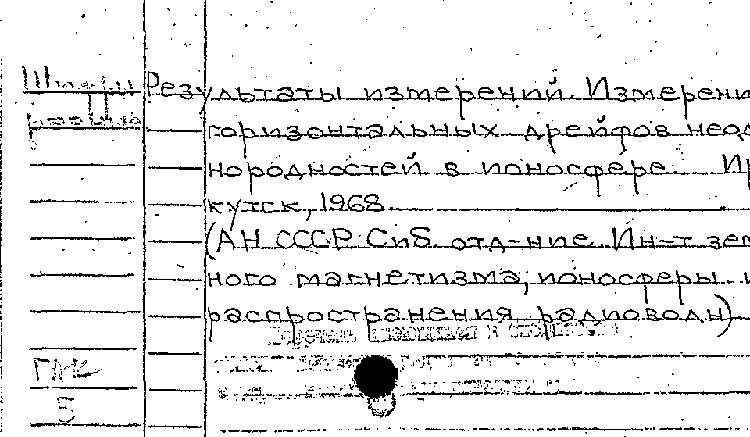 Шифры
Результаты измерений. Измерени
горизонтальных дрейфов неод
нородностей в ионосфере. Ир
кутск, 1968.
(АН СССР. Сиб. отд-ние. Ин-т зем
ного магнетизма, ионосферы и
распространения радиоволн)
5